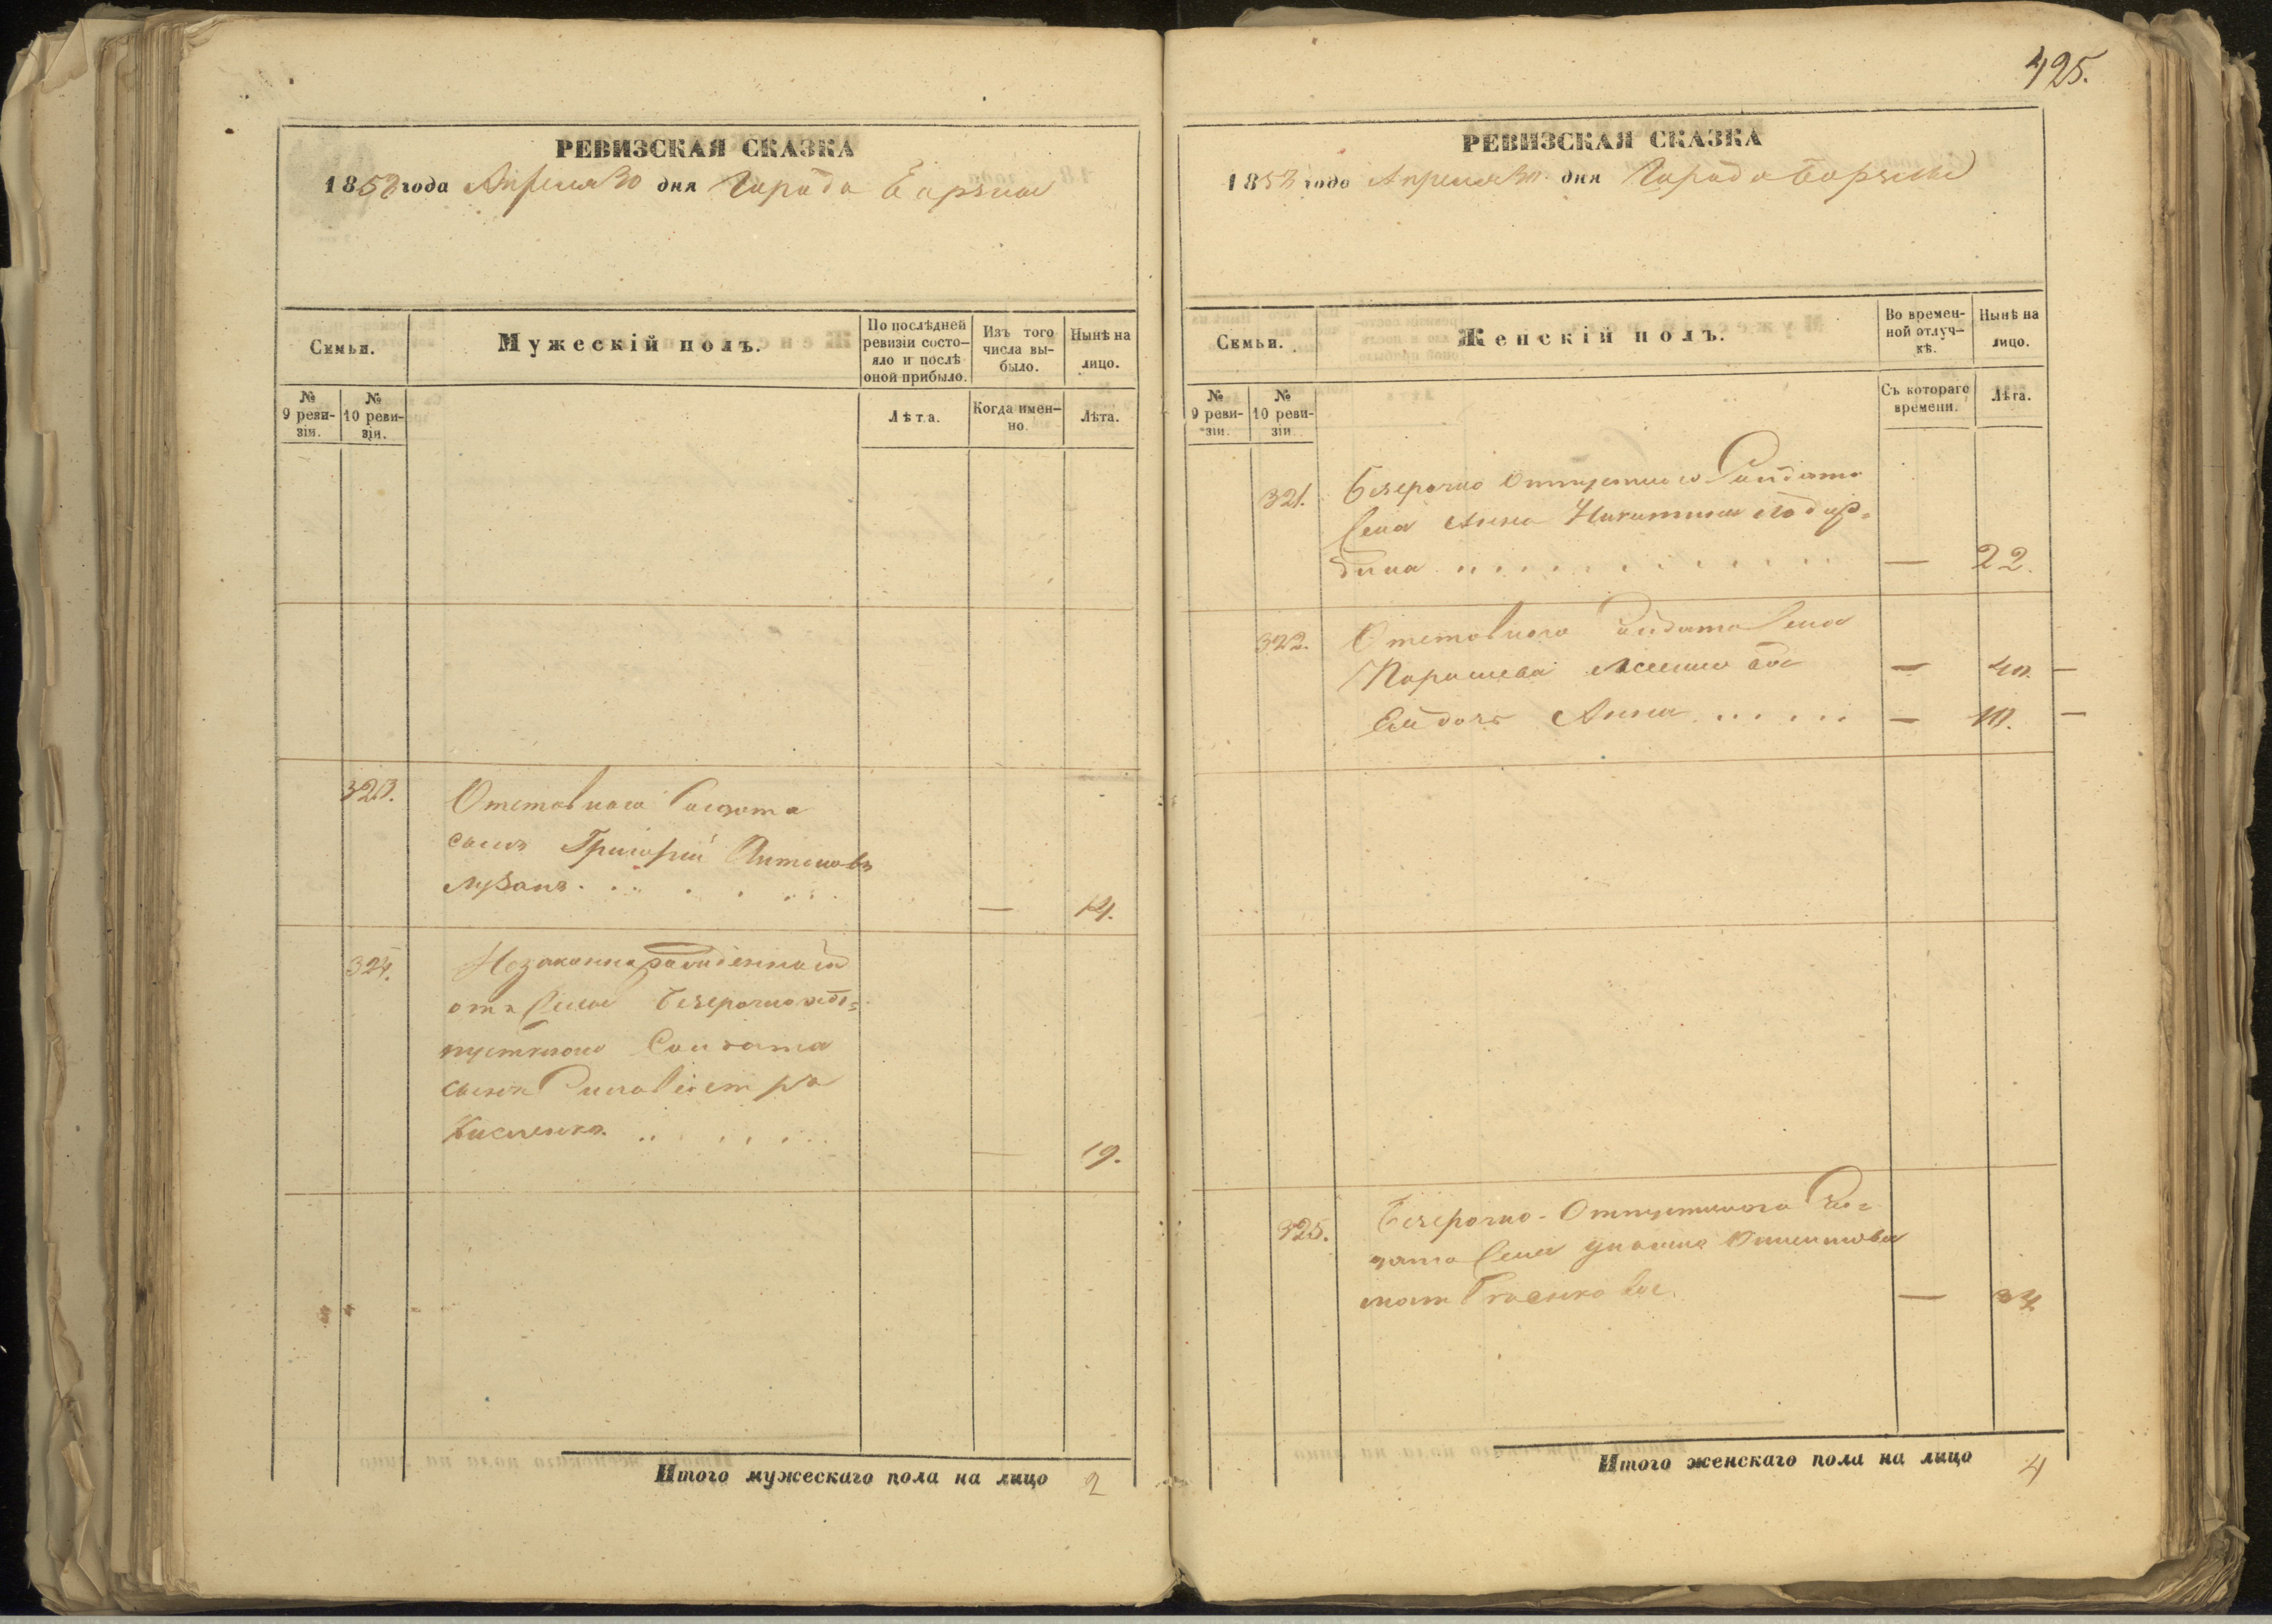 425.
РЕВИЗСКАЯ СКАЗКА
1858 года Апреля 30 дня Города Борзны
Семьи.
Мужескій полъ.
По послѣдней
ревизіи состо-
яло и послѣ
оной прибыло.
Изъ того
числа вы-
было.
Нынѣ на
лицо.
№
9 реви-
зіи.
№
10 реви-
зіи.
Лѣта.
Когда имен-
но
Лѣта.
323.
Отставнаго Солдата
сынъ Григорій Антоновъ
— 14.
324.
Незаконнорожденный
отъ Безсрочноот=
пускнаго Солдата
сынъ
— 19.
Итого мужескаго пола на лицо 2
РЕВИЗСКАЯ СКАЗКА
1858 года Апреля 30 дня Города Борзны
Семьи.
Женскій полъ.
Во времен-
ной отлуч-
кѣ.
Нынѣ на
лицо.
№
9 реви-
зіи.
№
10 реви-
зіи
Съ котораго
времени.
Лѣта.
321. Безсрочно Солдата
Анна Никитина
— 22.
322. Отставнаго Солдата
— 40. —
Ея дочь Анна — 10. —
325. Безсрочно-Отпускнаго Сол=
дата
— 34.
Итого женскаго пола на лицо 4